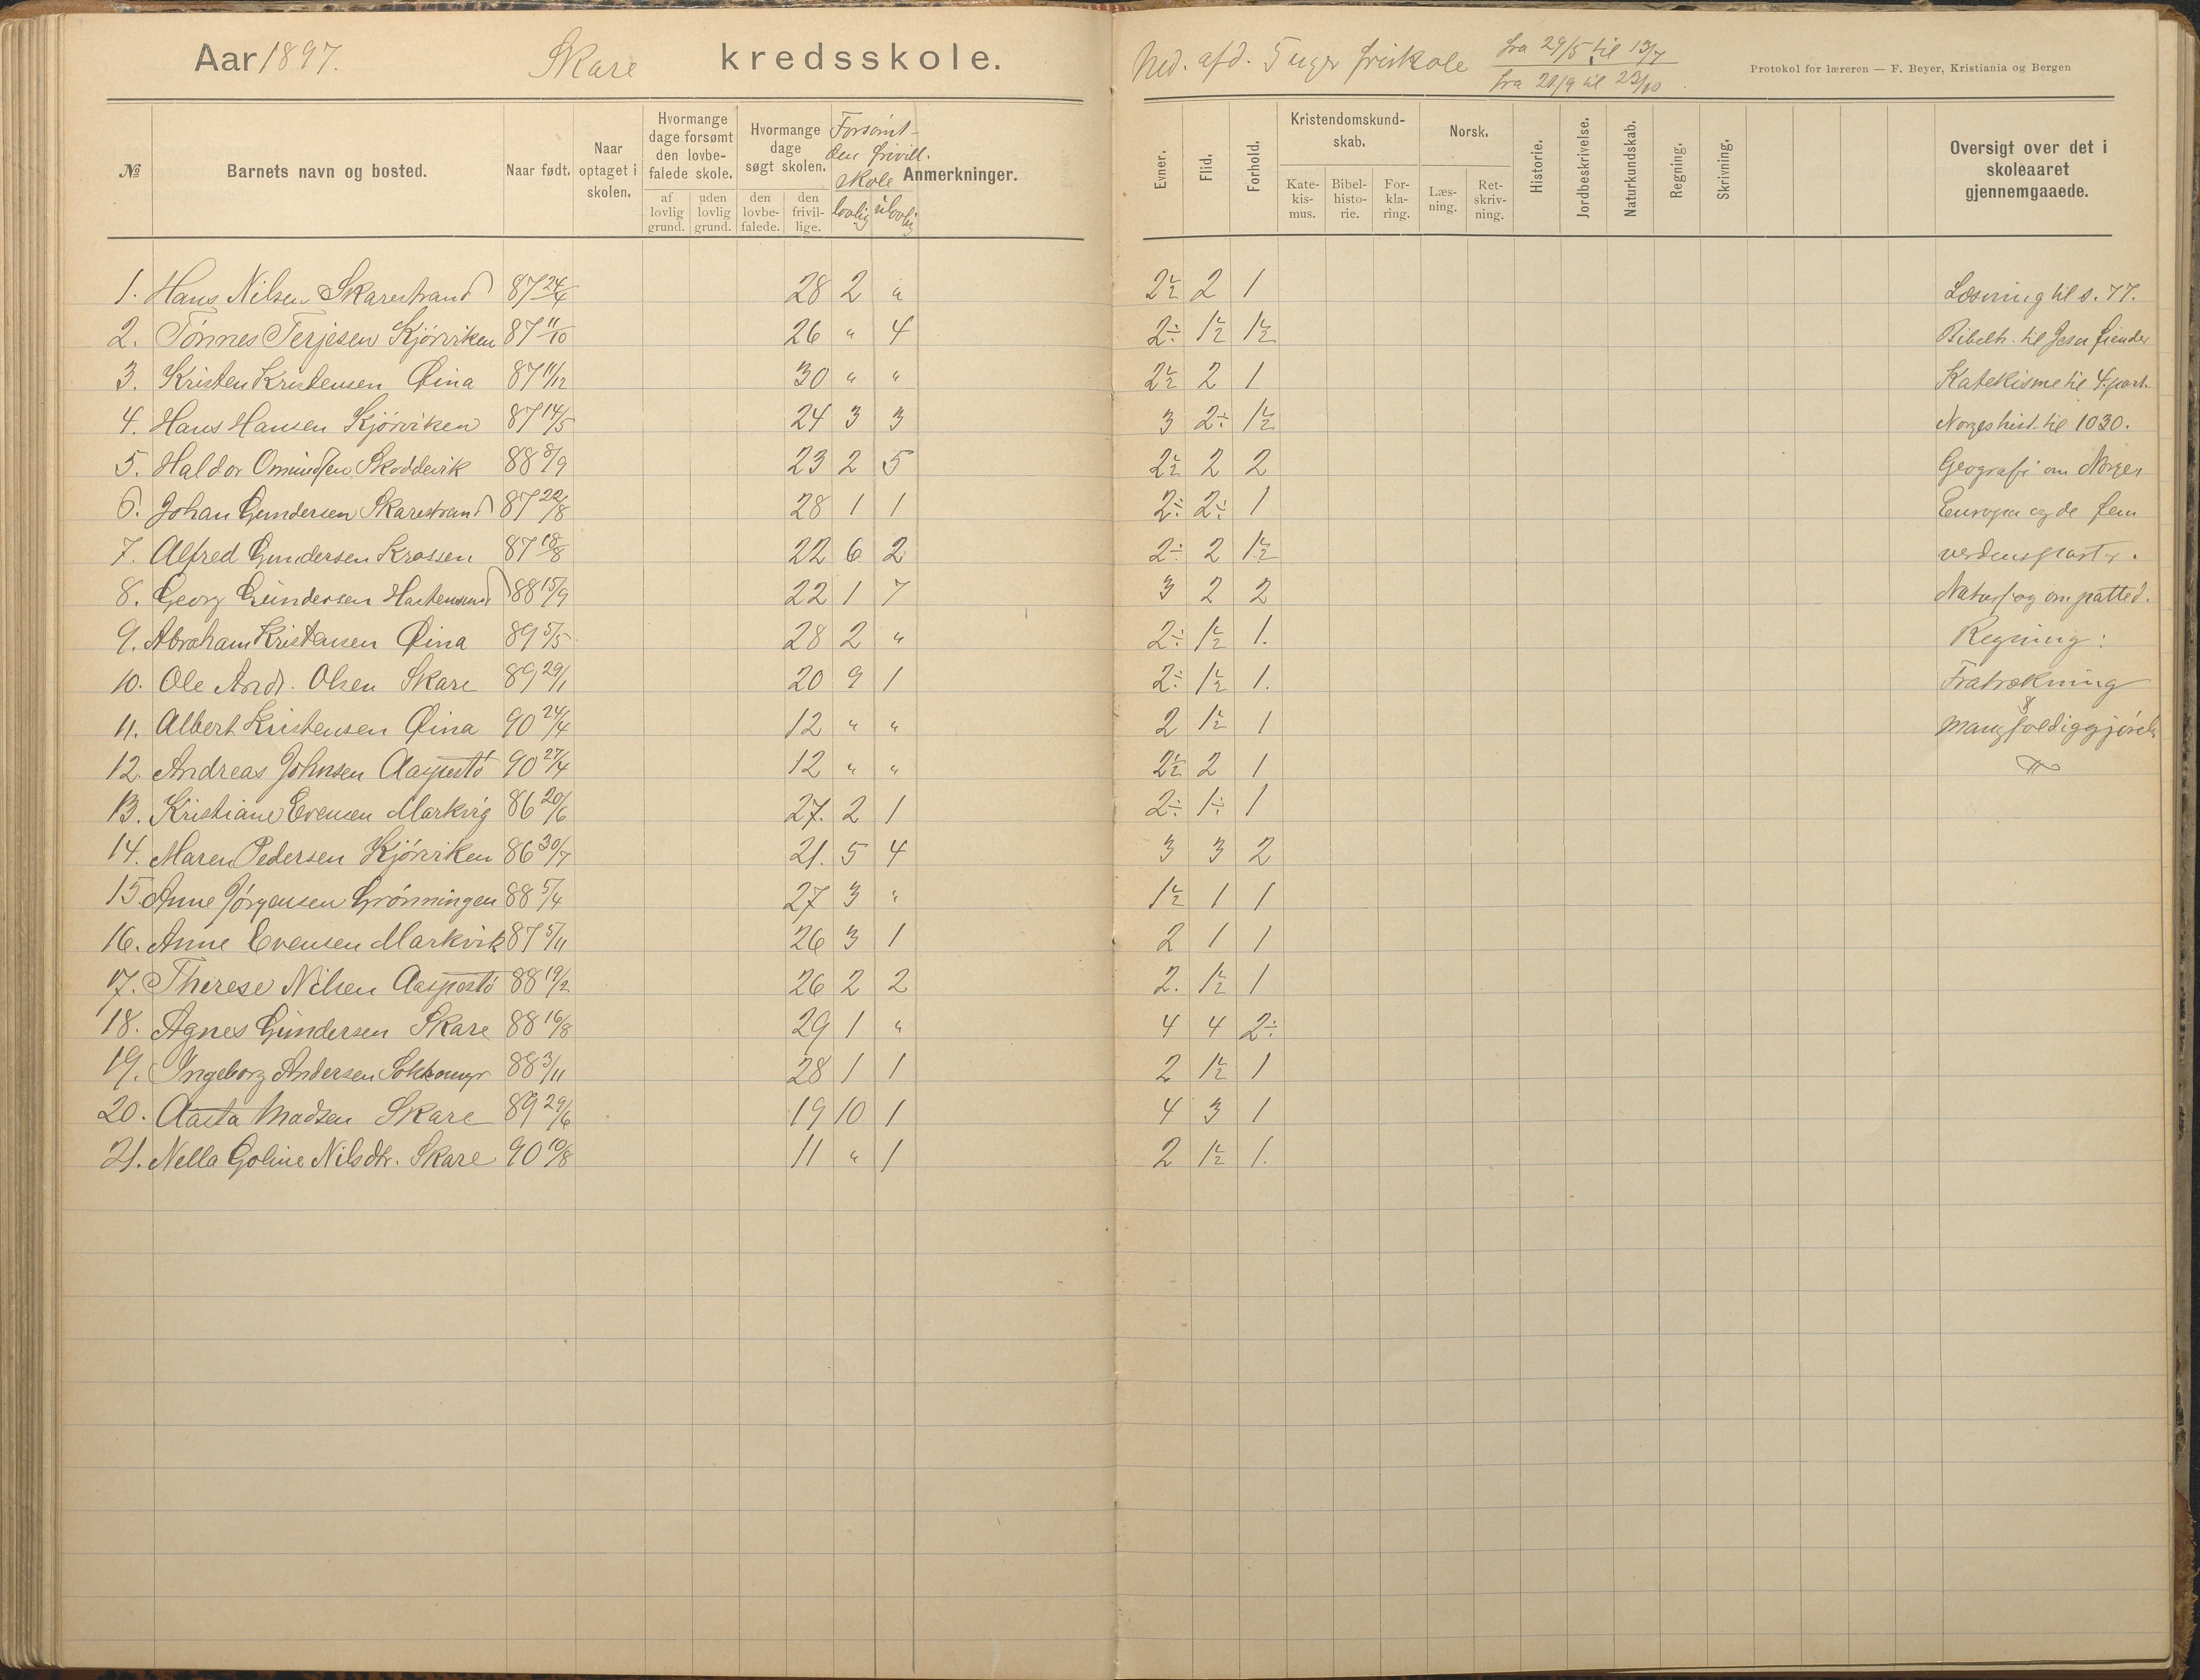 Aar 1897. Skare kredsskole.
Ned. afd. 5 uger friskole fra 29/5 til 13/7
fra 21/9 til 23/10.
Protokol for læreren — F. Beyer, Kristiania og Bergen
№
Barnets navn og bosted.
Naar født.
Naar optaget i skolen.
Hvormange dage forsømt den lovbefalede skole.
af lovlig grund.
uden lovlig grund.
Hvormange dage søgt skolen.
den lovbefalede.
den frivillige.
Forsömt den frivill. skole
lovlig
ulovlig
Anmerkninger.
Evner.
Flid.
Forhold.
Kristendomskundskab.
Katekismus.
Bibelhistorie.
Forklaring.
Norsk.
Læsning.
Retskrivning.
Historie.
Jordbeskrivelse.
Naturkundskab.
Regning.
Skrivning.
Oversigt over det i skoleaaret gjennemgaaede.
1. Hans Nilsen Skarestrand 87 24/4 28 2 " 2½ 2 1 Læsning til s. 77.
2. Tönnes Terjesen Kjörviken 87 11/10 26 " 4 2÷ 1½ 1½ Bibelh. til Jesu fiender
3. Kristen Kristensen Øina 87 11/12 30 " " 2½ 2 1 Katekisme til 4. part.
4. Hans Hansen Kjörviken 87 14/5 24 3 3 3 2÷ 1½ Norges hist. til 1030.
5. Haldor Omundsen Skoddevik 88 8/9 23 2 5 2½ 2 2 Geografi om Norge,
6. Johan Gundersen Skarestrand 87 22/8 28 1 1 2÷ 2÷ 1 Europa og de fem
7. Alfred Gundersen Krossen 87 18/8 22 6 2 2÷ 2 1½ verdensparter.
8. Georg Gundersen 88 15/9 22 1 7 3 2 2 Naturf. og om patted.
9. Abraham Kristensen Øina 89 5/5 28 2 " 2÷ 1½ 1. Regning:
10. Ole Andr. Olsen Skare 89 29/1 20 9 1 2÷ 1½ 1. Fratrækning
11. Albert Kristensen Øina 90 24/4 12 " " 2 1½ 1 & mangfoldiggjörelse
12. Andreas Johnsen Aagestö 90 27/4 12 " " 2½ 2 1
13. Kristiane Evensen Markvig 86 20/6 27. 2 1 2÷ 1÷ 1
14. Maren Pedersen Kjörviken 86 30/7 21. 5 4 3 3 2
15. Anne Jörgensen Grönningen 88 5/4 27 3 " 1½ 1 1
16. Anne Evensen Markvik 87 5/11 26 3 1 2 1 1
17. Therese Nilsen 88 19/2 26 2 2 2. 1½ 1
18. Agnes Gundersen Skare 88 16/8 29 1 " 4 4 2÷
19. Ingeborg Andersen 88 3/11 28 1 1 2 1½ 1
20. Aasta Madsen Skare 89 29/6 19 10 1 4 3 1
21. Nella Goline Nilsdtr. Skare 90 10/8 11 " 1 2 1½ 1.